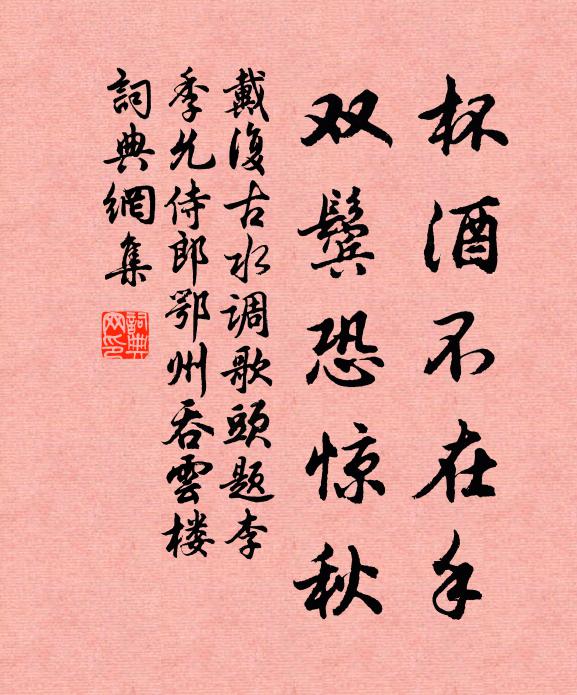 杯酒不在手
双鬓恐惊秋
戴復古水调歌頭题李
季允侍郎鄂州吞雲楼
詞典網集
詞典網印